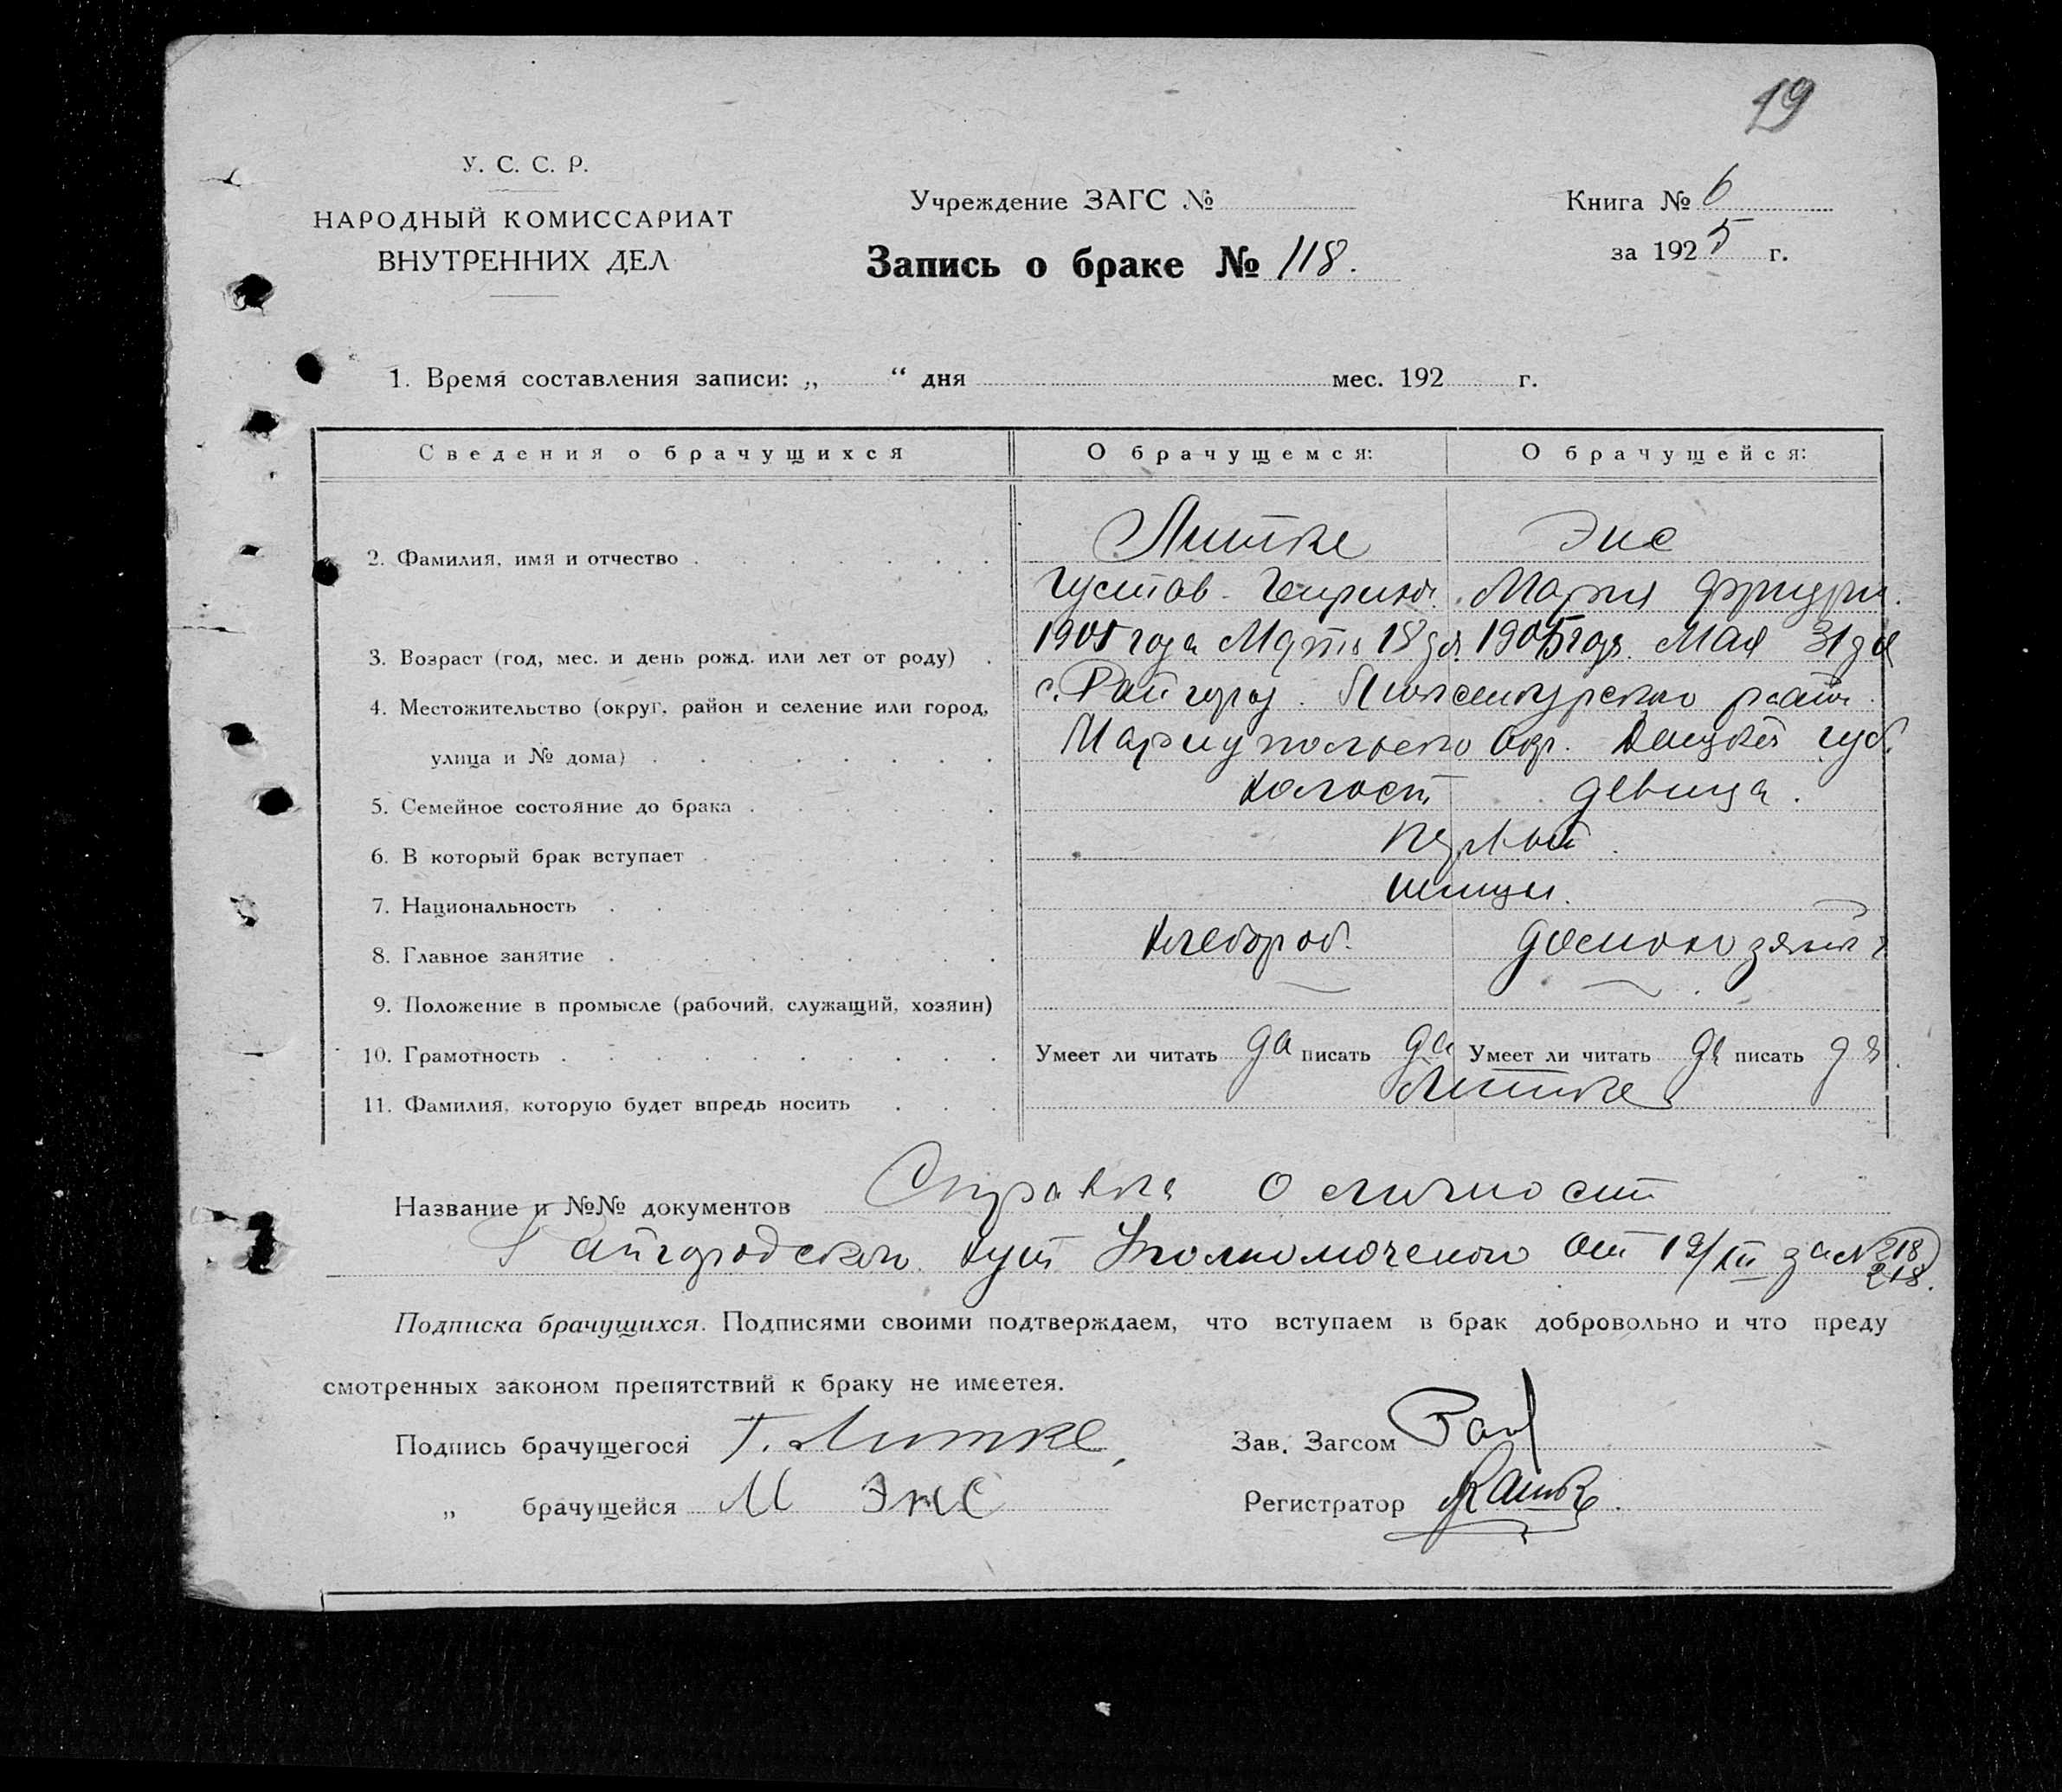 19
У. С. С. Р.
НАРОДНЫЙ КОМИССАРИАТ
ВНУТРЕННИХ ДЕЛ
Учреждение ЗАГС №
Запись о браке № 118.
Книга № 6
за 1925 г.
1. Время составления записи: „ “ дня мес. 192 г.
Сведения о брачущихся О брачущемся: О брачущейся:
2. Фамилия, имя и отчество
Литке Энс
Густав Генрихов. Мария Фридрих.
3. Возраст (год, мес. и день рожд. или лет от роду) 1905 года Марта 18 дня 1905 года Мая 31 дня
4. Местожительство (округ, район и селение или город, с. Райгород Люксембургского район
улица и № дома) Мариупольского Окр. Донецкой губ.
5. Семейное состояние до брака холост девица.
6. В который брак вступает первый.
7. Национальность немцы.
8. Главное занятие хлебороб. домохозяйка
9. Положение в промысле (рабочий, служащий, хозяин)
10. Грамотность Умеет ли читать да писать да Умеет ли читать да писать да
11. Фамилия, которую будет впредь носить Литке
Название и №№ документов Справка о личности
Райгородского кут Уполномоченого от 19/XII за № 218
218.
Подписка брачущихся. Подписями своими подтверждаем, что вступаем в брак добровольно и что преду
смотренных законом препятствий к браку не имеетея.
Подпись брачущегося Г. Литке,
Зав. Загсом
„ брачущейся М Энс
Регистратор